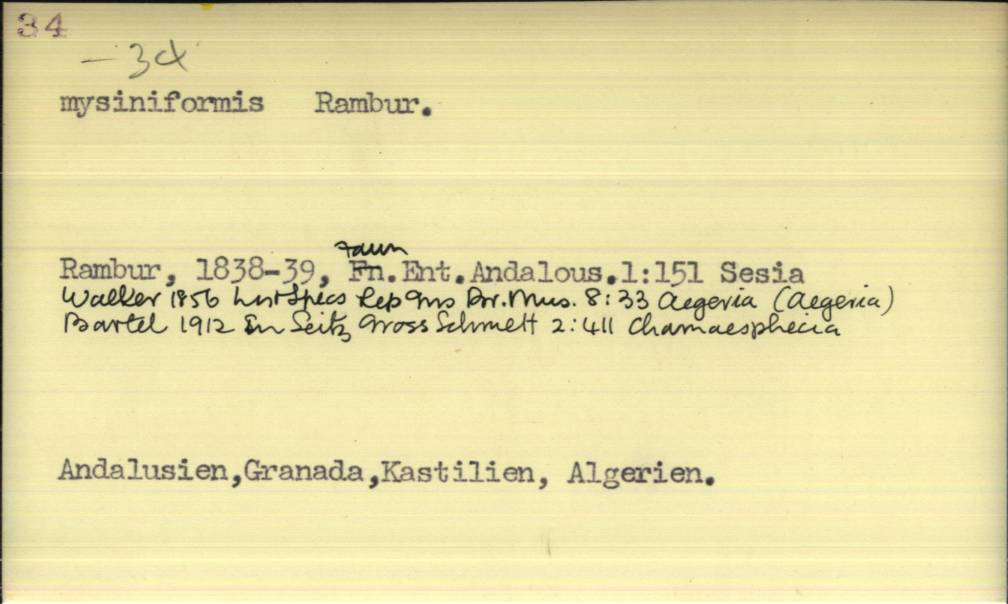 34
- 34
mysiniformis Rambur.
Faun
Rambur, 1838-39, Fn.Ent.Andalous.1:151 Sesia
Walker 1856 List Specs Lep Ins Br. Mus. 8:33 Aegeria (Aegeria)
Bartel 1912 In Seitz Gross Schmett 2:411 Chamaesphecia
Andalusien,Granada,Kastilien, Algerien.